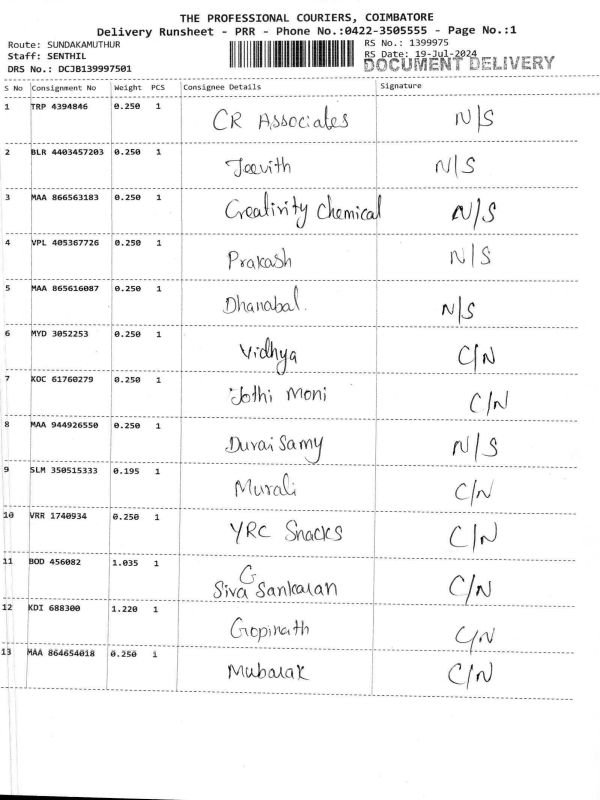 THE PROFESSIONAL COURIERS, COIMBATORE
Delivery Runsheet - PRR - Phone No.:0422-3505555 - Page No.:1
Route: SUNDAKAMUTHUR
Staff: SENTHIL
DRS No.: DCJB139997501
RS No.: 1399975
RS Date: 19-Jul-2024
DOCUMENT DELIVERY
S No Consignment No Weight PCS Consignee Details Signature
1 TRP 4394846 0.250 1 CR Associates N/S
2 BLR 4403457203 0.250 1 Jeevith N/S
3 MAA 866563183 0.250 1 Creativity Chemical N/S
4 VPL 405367726 0.250 1 Prakash N/S
5 MAA 865616087 0.250 1 Dhanabal. N/S
6 MYD 3052253 0.250 1 Vidhya C/N
7 KOC 61760279 0.250 1 Jothi Moni C/N
8 MAA 944926550 0.250 1 Durai Samy N/S
9 SLM 350515333 0.195 1 Murali C/N
10 VRR 1740934 0.250 1 YRC Snacks C/N
11 BOD 456082 1.035 1 G Siva Sankaran C/N
12 KDI 688300 1.220 1 Gopinath C/N
13 MAA 864654018 0.250 1 Mubarak C/N